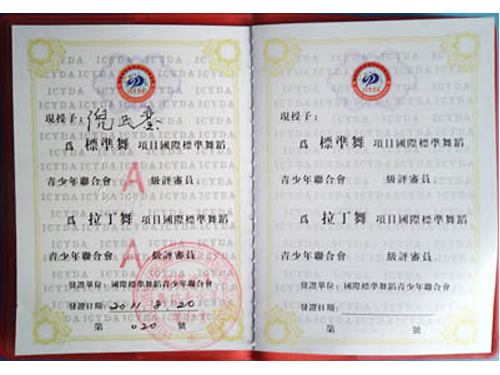 現授予：倪
為 標準舞 項目國際標準舞蹈
青少年聯合會 A 級評審員；
為 拉丁舞 項目國際標準舞蹈
青少年聯合會 A 級評審員
發證單位：國際標準舞蹈青少年聯合會
發證日期：2011.8.20
第 020 號
現授予：
為 標準舞 項目國際標準舞蹈
青少年聯合會 級評審員；
為 拉丁舞 項目國際標準舞蹈
青少年聯合會 級評審員
發證單位：國際標準舞蹈青少年聯合會
發證日期：
第 號
ICYDA